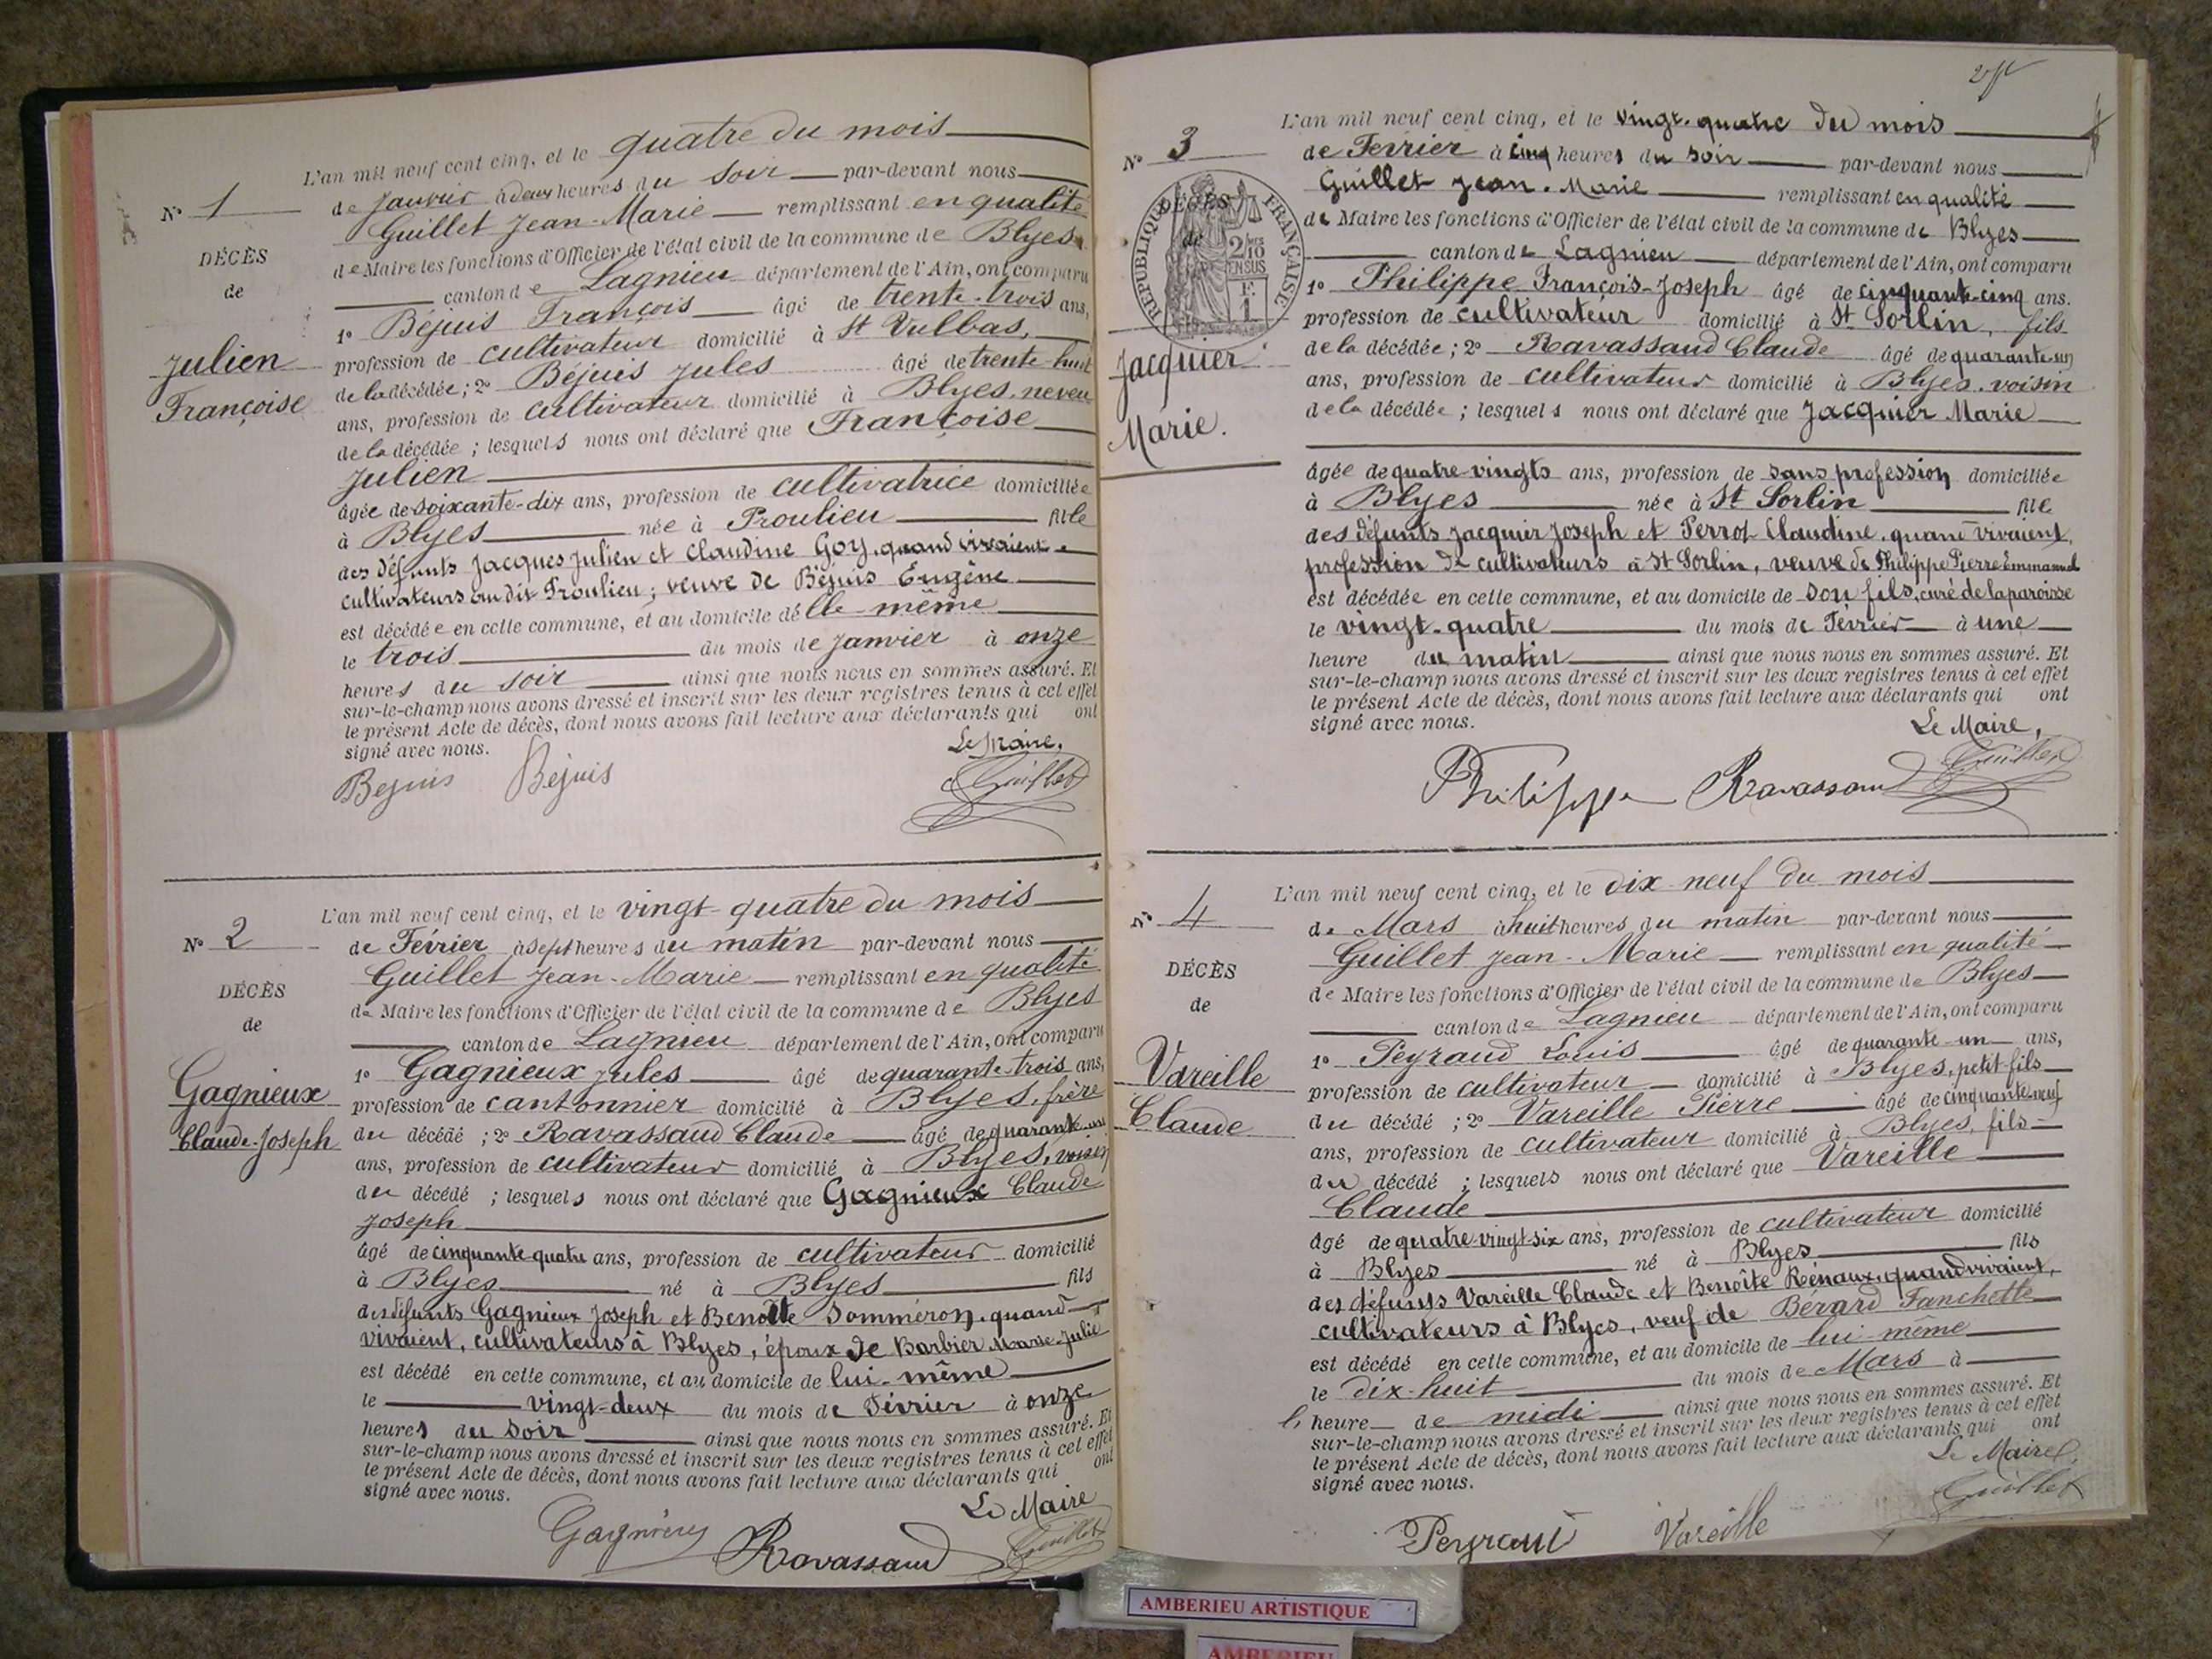 L'an mil neuf cent cinq, et le quatre du mois
N° 1
de Janvier à deux heures du soir par-devant nous
Guillet Jean-Marie remplissant en qualité
DÉCÈS
de Maire les fonctions d'Officier de l'état civil de la commune de Blyes
de
canton de Lagnieu département de l'Ain, ont comparu
1° Béjuis François âgé de trente-trois ans,
Julien
profession de cultivateur domicilié à St Vulbas,
Françoise
de la décédée ; 2° Béjuis Jules âgé de trente-huit
ans, profession de cultivateur domicilié à Blyes, neveu
de la décédée ; lesquels nous ont déclaré que Françoise
Julien
âgée de soixante-dix ans, profession de cultivatrice domiciliée
à Blyes née à Proulieu fille
des défunts Jacques Julien et Claudine Goy, quand vivaient
cultivateurs audit Proulieu ; veuve de Béjuis Eugène
est décédée en cette commune, et au domicile d'elle-même
le trois du mois de Janvier à onze
heures du soir ainsi que nous nous en sommes assuré. Et
sur-le-champ nous avons dressé et inscrit sur les deux registres tenus à cet effet
le présent Acte de décès, dont nous avons fait lecture aux déclarants qui ont
signé avec nous.
Le Maire,
Bejuis Béjuis Guillet
L'an mil neuf cent cinq, et le vingt-quatre du mois
N° 2
de Février à sept heures du matin par-devant nous
Guillet Jean-Marie remplissant en qualité
DÉCÈS
de Maire les fonctions d'Officier de l'état civil de la commune de Blyes
de
canton de Lagnieu département de l'Ain, ont comparu
1° Gagnieux Jules âgé de quarante-trois ans,
Gagnieux
profession de cantonnier domicilié à Blyes, frère
Claude-Joseph
du décédé ; 2° Ravassaud Claude âgé de quarante-un
ans, profession de cultivateur domicilié à Blyes, voisin
du décédé ; lesquels nous ont déclaré que Gagnieux Claude
Joseph
âgé de cinquante-quatre ans, profession de cultivateur domicilié
à Blyes né à Blyes fils
des défunts Gagnieux Joseph et Benoîte Somméron, quand
vivaient, cultivateurs à Blyes, époux de Barbier Marie-Julie
est décédé en cette commune, et au domicile de lui-même
le vingt-deux du mois de Février à onze
heures du soir ainsi que nous nous en sommes assuré. Et
sur-le-champ nous avons dressé et inscrit sur les deux registres tenus à cet effet
le présent Acte de décès, dont nous avons fait lecture aux déclarants qui ont
signé avec nous.
Le Maire
Gagnieux Ravassaud Guillet
L'an mil neuf cent cinq, et le vingt-quatre du mois
N° 3
de Février à cinq heures du soir par-devant nous
Guillet Jean-Marie remplissant en qualité
DÉCÈS
de
RÉPUBLIQUE FRANÇAISE
de Maire les fonctions d'Officier de l'état civil de la commune de Blyes
canton de Lagnieu département de l'Ain, ont comparu
1° Philippe François-Joseph âgé de cinquante-cinq ans.
profession de cultivateur domicilié à St Sorlin, fils
Jacquier
de la décédée ; 2° Ravassaud Claude âgé de quarante-un
ans, profession de cultivateur domicilié à Blyes, voisin
Marie.
de la décédée ; lesquels nous ont déclaré que Jacquier Marie
âgée de quatre-vingts ans, profession de sans profession domiciliée
à Blyes née à St Sorlin fille
des défunts Jacquier Joseph et Perrot Claudine, quand vivaient,
profession de cultivateurs à St Sorlin, veuve de Philippe Pierre Emmanuel
est décédée en cette commune, et au domicile de son fils, curé de la paroisse
le vingt-quatre du mois de Février à une
heure du matin ainsi que nous nous en sommes assuré. Et
sur-le-champ nous avons dressé et inscrit sur les deux registres tenus à cet effet
le présent Acte de décès, dont nous avons fait lecture aux déclarants qui ont
signé avec nous.
Le Maire,
Philippe Ravassaud Guillet
L'an mil neuf cent cinq, et le dix neuf du mois
N° 4
de Mars à huit heures du matin par-devant nous
Guillet Jean-Marie remplissant en qualité
DÉCÈS
de Maire les fonctions d'Officier de l'état civil de la commune de Blyes
de
canton de Lagnieu département de l'Ain, ont comparu
1° Peyraud Louis âgé de quarante-un ans,
Vareille
profession de cultivateur domicilié à Blyes, petit-fils
Claude
du décédé ; 2° Vareille Pierre âgé de cinquante-neuf
ans, profession de cultivateur domicilié à Blyes, fils
du décédé ; lesquels nous ont déclaré que Vareille
Claude
âgé de quatre-vingt-six ans, profession de cultivateur domicilié
à Blyes né à Blyes fils
des défunts Vareille Claude et Benoîte Rénaux, quand vivaient,
cultivateurs à Blyes, veuf de Bérard Fanchette
est décédé en cette commune, et au domicile de lui-même
le dix-huit du mois de Mars à
l' heure de midi ainsi que nous nous en sommes assuré. Et
sur-le-champ nous avons dressé et inscrit sur les deux registres tenus à cet effet
le présent Acte de décès, dont nous avons fait lecture aux déclarants qui ont
signé avec nous.
Le Maire,
Peyraud Vareille Guillet
AMBERIEU ARTISTIQUE
AMBERIEU